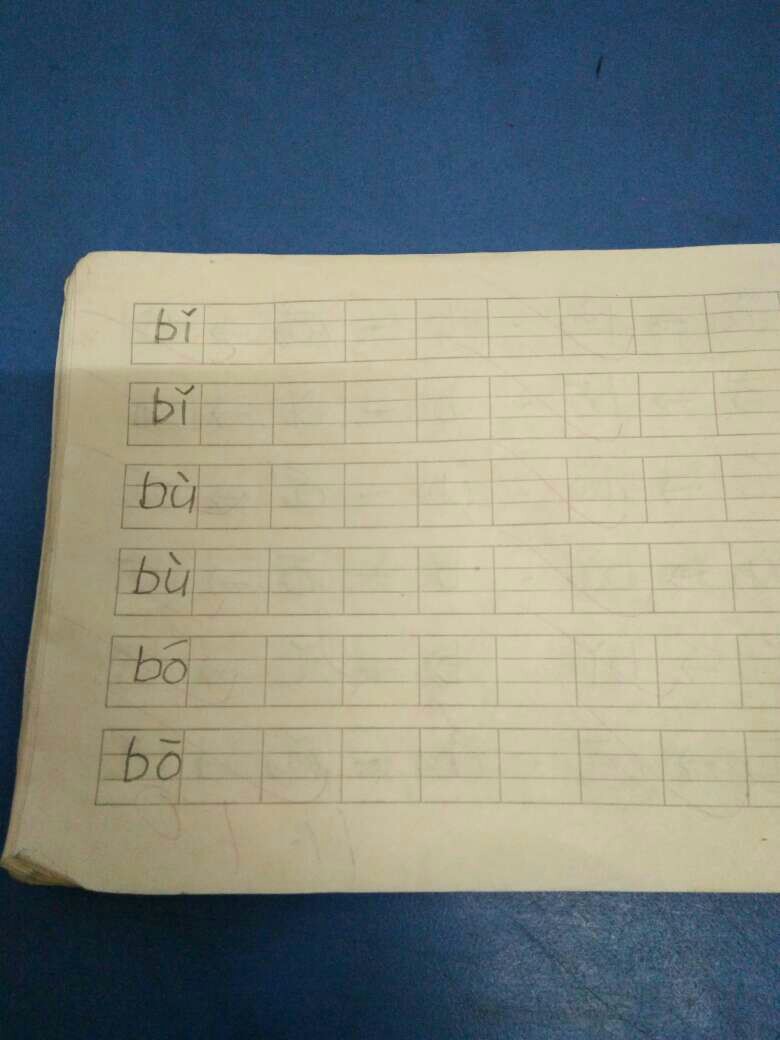 bǐ
bǐ
bù
bù
bó
bō